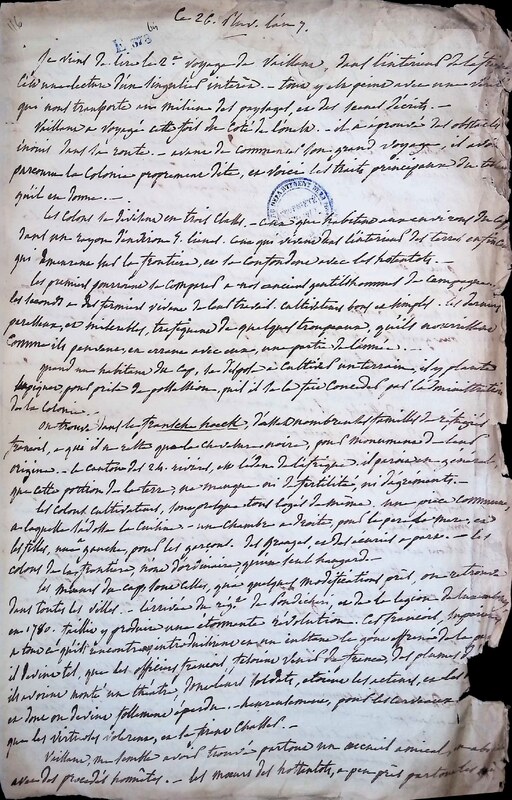 Ce 26. Pluv. l'an 7.
E 378
Je viens de lire le 2e voyage de Vaillant, dans l'intérieur de
C'est une lecture d'un singulier intérêt. - tout y est peint avec une
qui nous transporte au milieu des paysages, et des scenes décrits. -
Vaillant a voyagé cette fois du coté de l'ouest. - il a éprouvé des obstacles
inouis dans sa route. - avant de commencer son grand voyage, il avait
parcouru la Colonie proprement dite, et voici les traits principaux du
qu'il en donne. -
Les colons se divisent en trois classes. - ceux qui habitent aux environs du Cap
dans un rayon d'environ 5. lieues. ceux qui vivent dans l'intérieur des terres enfin ceux
qui demeurent sur la frontière, et se confondent avec les hottentots. -
Les premiers pourraient se comparer a nos anciens gentilshommes de campagne.
les seconds a des fermiers vivant de leur travail. cultivateurs bons et simples. Les derniers
paresseux, et misérables, trafiquent de quelques troupeaux, qu'ils nourrissent
comme ils peuvent, en errant avec eux, une partie de l'année. -
quand un habitant du Cap, se dispose à cultiver un terrain, il y plante
piquet, pour prise de possession, puis il se la fait conceder par l'administration
de la Colonie. -
On trouve dans le fransche hoeck, d'assés nombreuses familles de réfugiés
français, a qui il ne reste que la chevelure noire, pour monument de leur
origine. - le canton des 24. rivières, est l'éden de l'afrique. il paroit en général,
que cette portion de la terre, ne manque ni de fertilité, ni d'agréments. -
Les colons cultivateurs, sont presque tous logés de même. une pièce commune,
a laquelle s'adosse la cuisine - une chambre a droite, pour le pere la mere, et
les filles, une a gauche, pour les garçons. des granges, et des écuries a part. - les
colons de la frontière, n'ont d'ordinaire, qu'un seul hangard.
Les mœurs du Cap, sont celles, qu'a quelques modifications près, on retrouve
dans toutes les villes. - l'arrivée du régt de Pondichery, et de la légion de Luxembourg
en 1780. faillit y produire une étonnante révolution. Ces français,
a tout ce qu'ils
il devint tel, que les officiers français, faisoient venir de france, des plumes
ils avoient monté un théâtre, dont leurs soldats, etoient les acteurs, et
et dont on devint follement éperdu. - heureusement, pour les
que les
Vaillant, me semble avoir trouvé partout un acceuil amical,
avec des procédés honnêtes. - les mœurs des hottentots, a peu près partout les